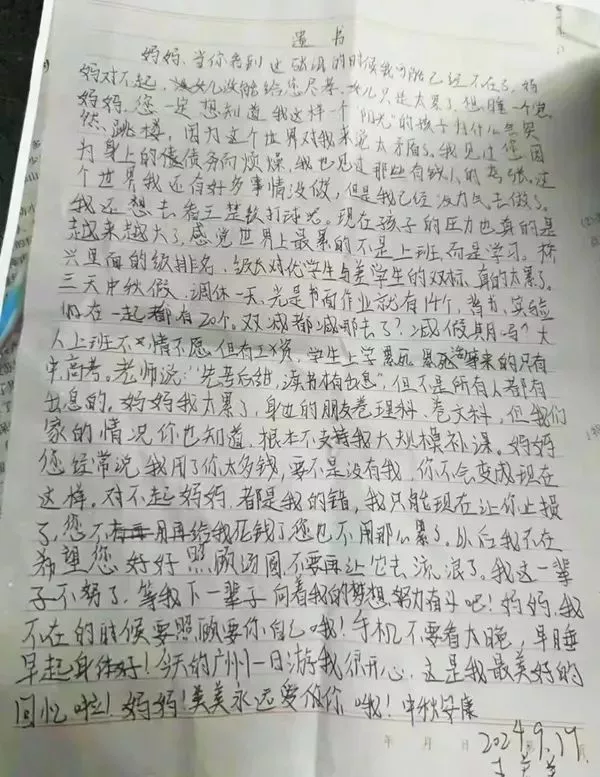 遗书
妈妈,当你看到这封信的时候我可能已经不在了,妈
妈对不起,女儿没能给您尽孝,女儿只是太累了,想睡一个觉
妈妈,您一定想知道我这样一个“阳光”的孩子为什么会突
然跳楼,因为这个世界对我来说太矛盾了。我见过您因
为身上的债务而烦燥,我也见过那些有钱人的夸张,这
个世界我还有好多事情没做,但是我已经没力气去做了。
我还想去看三楚铁打河光。现在孩子的压力也真的是
越来越大了,感觉世界上最累的不是上班,而是学习。
兴里面的级排名、级长对优学生与差学生的双标,真的太累了。
三天中秋假,调休一天,光是书面作业就有14个,背书、实验
加在一起都有20个。双减都减哪去了?减假期吗?大
人上班不情不愿,但有工资,学生上学累死累死等来的只有
中高考。老师说:“先苦后甜,读书有出息”,但不是所有人都有
出息的。妈妈我太累了,身边的朋友卷理科、卷文科,但我们
家的情况你也知道,根本不支持我大规模补课。妈妈
您经常说我用了你太多钱,要不是没有我,你不会变成现在
这样。对不起妈妈,都是我的错,我只能现在让你止损
了,您不用再给我花钱了您也不用那么累了。以后我不在
希望您好好照顾汤圆,不要再让它去流浪了。我这一辈
子不努了,等我下一辈子向着我的梦想努力奋斗吧!妈妈,我
不在的时候要照顾要你自己哦!手机不要看太晚,早睡
早起身体好!今天的广州一日游我很开心,这是我最美好的
回忆啦!妈妈!美美永远爱你哦!中秋安康
年 月 日
2024.9.17